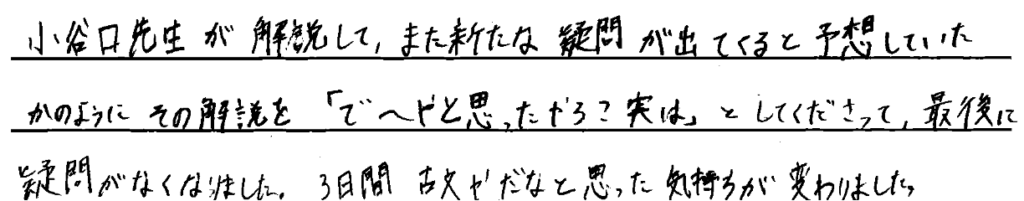 小谷口先生が解説して、また新たな疑問が出てくると予想していた
かのようにその解説を「で〜やと思ったやろ?実は」としてくださって、最後に
疑問がなくなりました。3日間古文やだなと思った気持ちが変わりました。